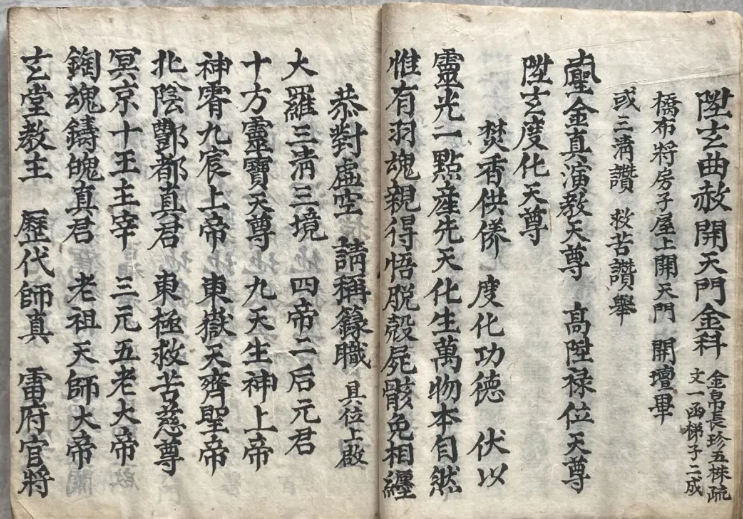 陞玄曲赦開天門金科 金帛長珍五株疏
文一函梯子二成
橋布將房子屋上開天門 開壇畢
或三清讚 救苦讚舉
金真演教天尊 高陞禄位天尊
陞玄度化天尊
焚香供养 度化功德 伏以
靈光一點産先天化生萬物本自然
惟有羽魂親得悟脱殼屍骸免相纏
恭對虛空 請稱籙職 具位上啟
大羅三清三境 四帝二后元君
十方靈寶天尊 九天生神上帝
神霄九宸上帝 東嶽天齊聖帝
北陰酆都真君 東極救苦慈尊
冥京十王主宰 三元五老大帝
鍧魂鑄魄真君 老祖天師大帝
玄堂教主 歷代師真 雷府官將